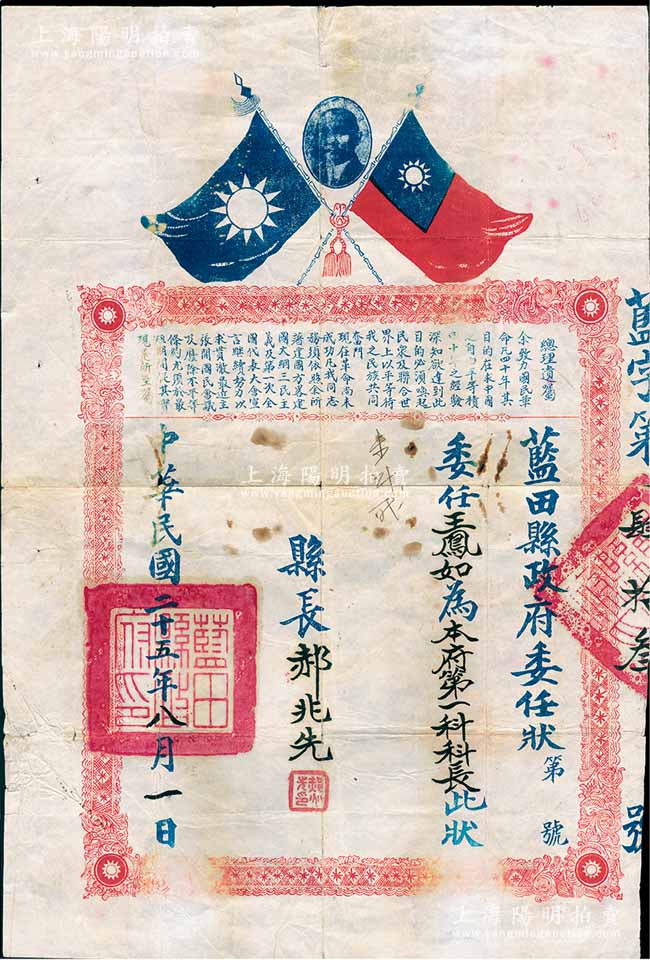 上海陽明拍賣
www.yangmingauction.com
藍字第
肆拾叁
號
總理遺囑
余致力國民革
命凡四十年其
目的在求中國
之自由平等積
四十年之經驗
深知欲達到此
目的必須喚起
民眾及聯合世
界上以平等待
我之民族共同
奮鬥
現在革命尚未
成功凡我同志
務須依照余所
著建國方畧建
國大綱三民主
義及第一次全
國代表大會宣
言繼續努力以
求貫徹最近主
張開國民會議
及廢除不平等
條約尤須於最
短期間促其實
現是所至囑
藍田縣政府委任狀 第 號
委任王鳳如為本府第一科科長此狀
縣長郝兆先
中華民國二十五年八月一日
藍田
縣政
府印
上海陽明拍賣
www.yangmingauction.com
上海陽明拍賣
www.yangmingauction.com